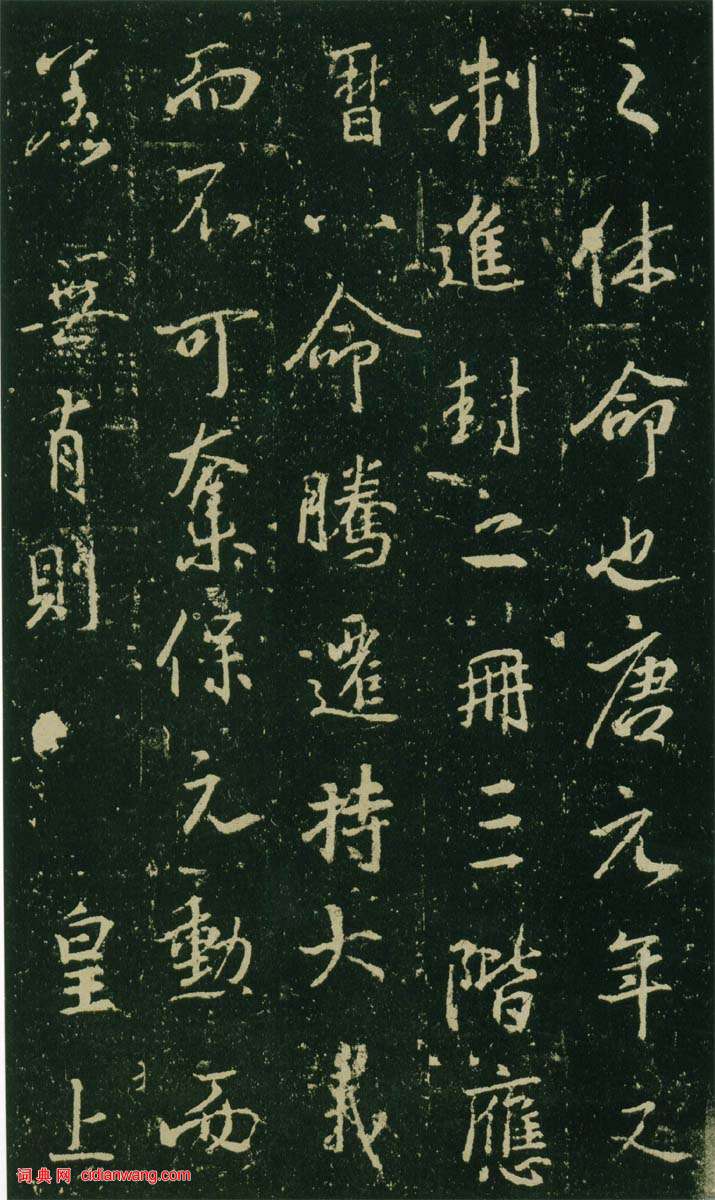 之休命也唐元年又
制進封二冊三階應
暦八命騰遷持大義
而不可奪保元勲而
恙無有則 皇上
词典网 cidianwang.com